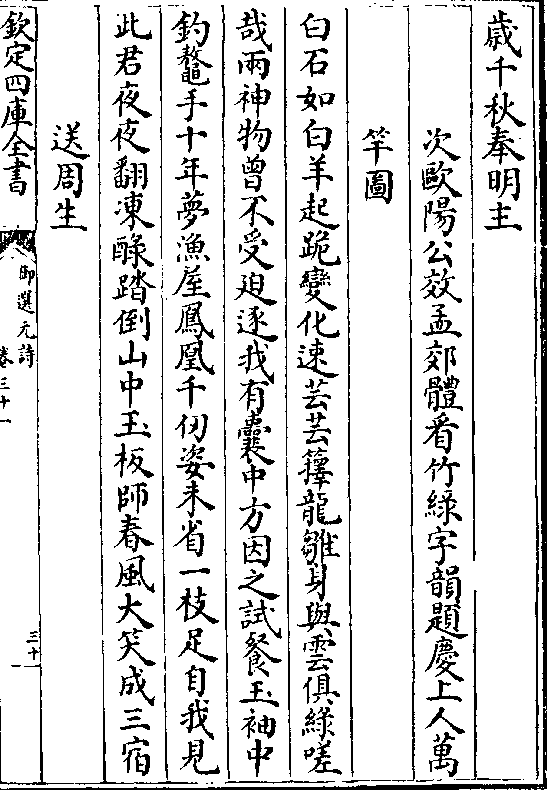 歲千秋奉明主
次歐陽公效孟郊體看竹綠字韻題慶上人萬
竿圖
白石如白羊起跪變化速芸芸籜龍雛身與雲俱綠嗟
哉兩神物曾不受迫逐我有囊中方因之試餐玉袖中
釣鼇手十年夢漁屋鳳凰千仞姿未省一枝足自我見
此君夜夜翻凍醁踏倒山中玉板師春風大笑成三宿
送周生
欽定四庫全書
御選元詩
卷三十一
三十一